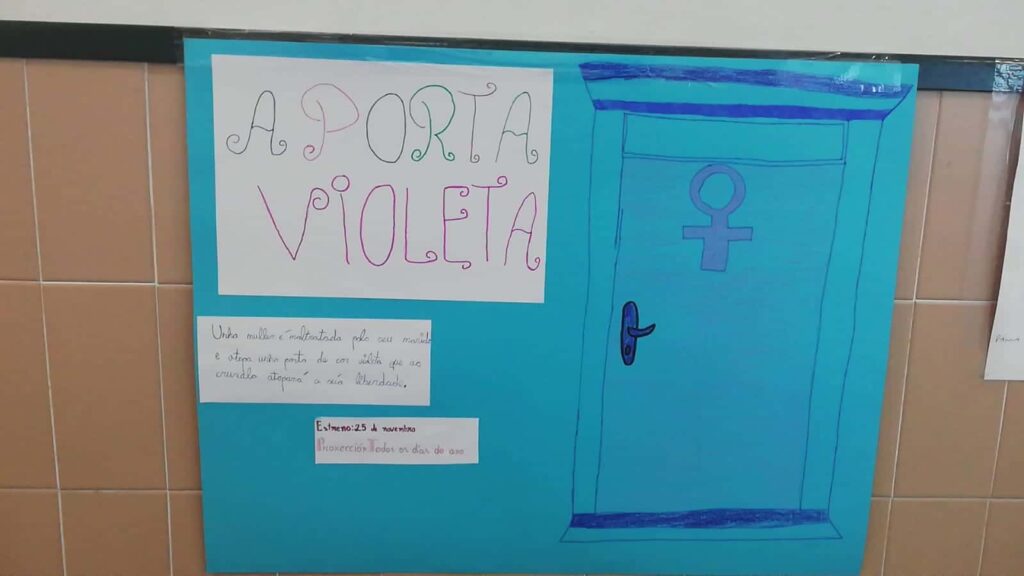 A PORTA
VIOLETA
Unha muller é maltratada polo seu marido
e atopa unha porta de cor violeta que ao
cruzala atopará a súa liberdade.
Estreno: 25 de novembro
Proxección: Todos os días do ano